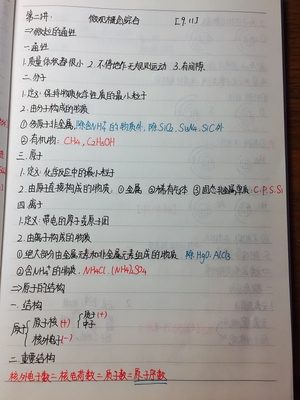 第二讲: 微观概念综合 [9.11]
⇒微粒的通性
一.通性
1.质量体积都很小 2.不停地作无规则运动 3.有间隔.
二.分子
1.定义:保持物质化学性质的最小粒子
2.由分子构成的物质
①含原子非金属,除含NH₄⁺的物质外,除SiO₂ Si₃N₄ SiC外
②有机物: CH₄, C₂H₅OH
三.原子
1.定义:化学反应中的最小粒子
2.由原子直接构成的物质: ①金属 ②稀有气体 ③固态非金属单质: C.P.S.Si
四.离子
1.定义:带电的原子或原子团
2.由离子构成的物质
①绝大部分由金属元素和非金属元素组成的物质 除HgO.AlCl₃
②含NH₄⁺的物质. NH₄Cl.(NH₄)₂SO₄
⇒原子的结构
一.结构
原子 原子核(+) 质子(+)
中子
核外电子(-)
二.重要结构
核外电子数=核电荷数=质子数=原子序数